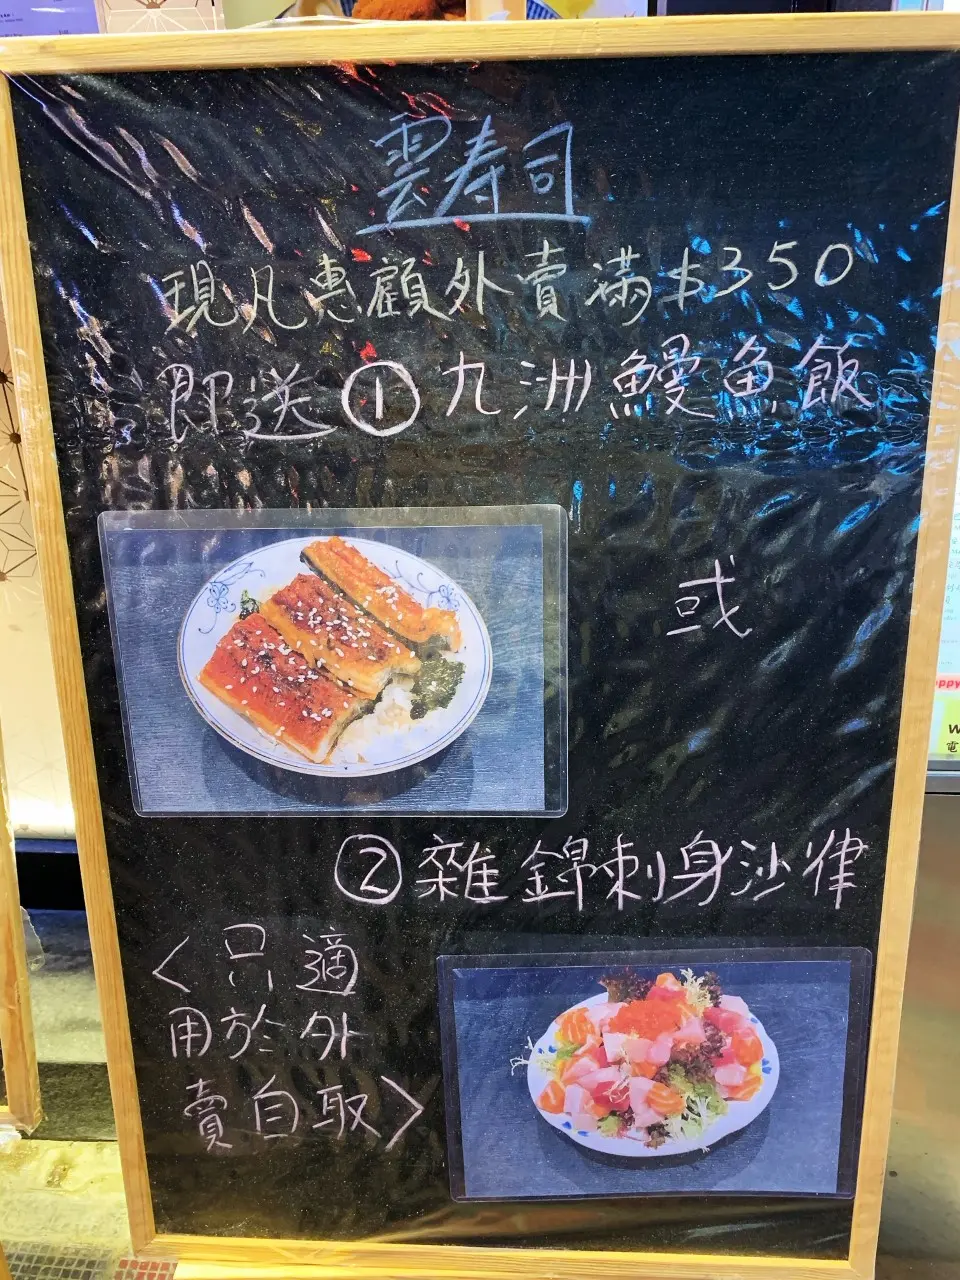 雲寿司
現凡惠顧外賣滿$350
即送①九洲鰻魚飯
或
②雜錦刺身沙律
<只適
用於外
賣自取>